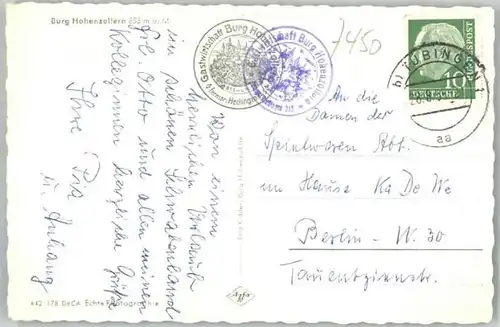 Burg Hohenzollern 853 m ü. M.
Gastwirtschaft Burg Hohenzollern
Gastwirtschaft Burg Hohenzollern
7450
TÜBINGEN
aa
DEUTSCHE BUNDESPOST
10
Von einem
herrlichen Urlaub
im schönen Schwabenland
die Otto und allen meinen
Kolleginnen herzliche Grüße
Ihre Pia
u. Anhang
An die
Damen der
Spielwaren Abt.
im Hause Ka De We
Berlin - W. 30
Tauentzienstr.
442 178 DeCA Echte Photographie